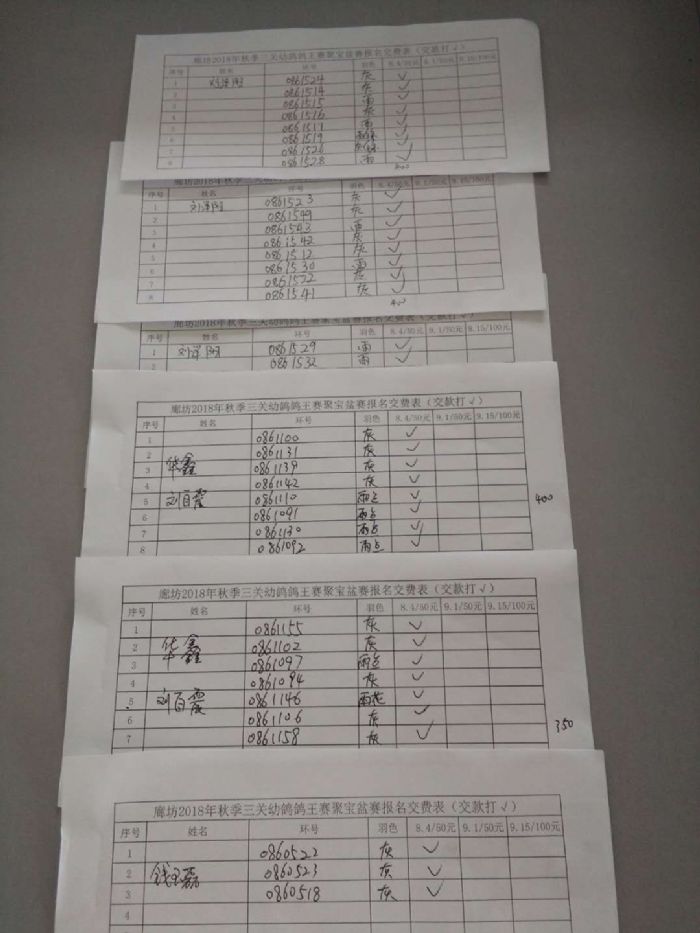 廊坊2018年秋季三关幼鸽鸽王赛聚宝盆赛报名交费表（交款打√）
序号 姓名 环号 羽色 8.4/50元 9.1/50元 9.15/100元
1 刘泽阁 0861524 灰 ✓
2 0861514 灰 ✓
3 0861515 雨 ✓
4 0861516 灰 ✓
5 0861511 雨 ✓
6 0861519 ✓
7 0861526 ✓
8 0861528 雨 ✓
400
序号 姓名 环号 羽色 8.4/50元 9.1/50元 9.15/100元
1 刘泽阁 0861523 灰 ✓
2 0861549 灰 ✓
3 0861543 雨 ✓
4 0861542 灰 ✓
5 0861512 灰 ✓
6 0861530 雨 ✓
7 0861522 灰 ✓
8 0861541 灰 ✓
400
廊坊2018年秋季三关幼鸽鸽王赛聚宝盆赛报名交费表（交款打√）
序号 姓名 环号 羽色 8.4/50元 9.1/50元 9.15/100元
1 刘泽阁 0861529 雨 ✓
2 0861532 雨 ✓
廊坊2018年秋季三关幼鸽鸽王赛聚宝盆赛报名交费表（交款打√）
序号 姓名 环号 羽色 8.4/50元 9.1/50元 9.15/100元
1 0861100 灰 ✓
2 0861131 灰 ✓
3 华鑫 0861139 灰 ✓
4 0861142 灰 ✓
5 刘百震 0861110 雨点 ✓
400
6 0861091 雨点 ✓
7 0861130 雨点 ✓
8 0861092 雨点 ✓
廊坊2018年秋季三关幼鸽鸽王赛聚宝盆赛报名交费表（交款打√）
序号 姓名 环号 羽色 8.4/50元 9.1/50元 9.15/100元
1 0861155 灰 ✓
2 华鑫 0861102 灰 ✓
3 0861097 雨点 ✓
4 0861094 灰 ✓
5 刘百震 0861146 雨花 ✓
6 0861106 灰 ✓
7 0861158 灰 ✓
350
廊坊2018年秋季三关幼鸽鸽王赛聚宝盆赛报名交费表（交款打√）
序号 姓名 环号 羽色 8.4/50元 9.1/50元 9.15/100元
1 0860522 灰 ✓
2 钱玉磊 0860523 灰 ✓
3 0860518 灰 ✓
4